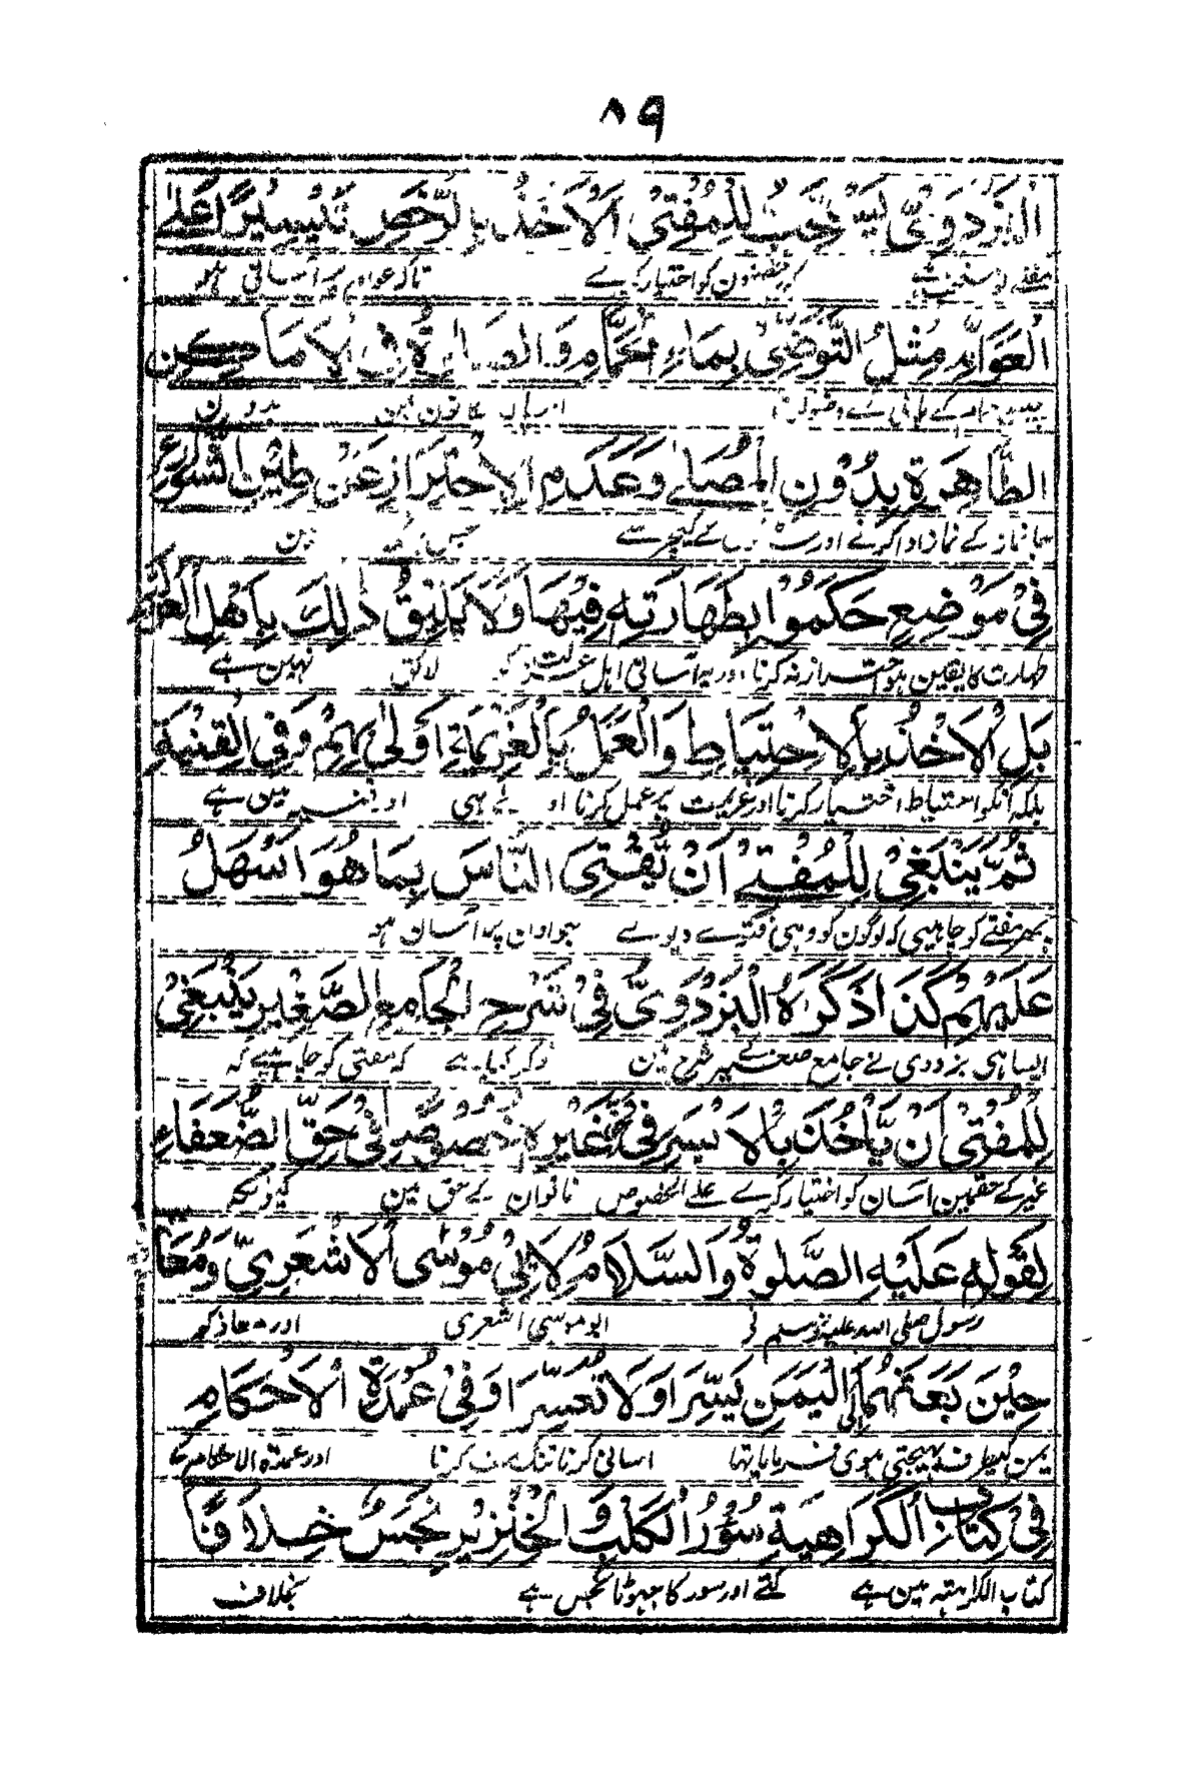 ٨٩
البَزْدَوِيّ يَسْتَحِبُّ لِلْمُفْتِيْ الْاَخْذُ بِالرُّخَصِ تَيْسِيْرًا عَلٰى
کو اختیار کرے تاکہ عوام پر آسانی ہو
الْعَوَامِّ مِثْلُ التَّوَضِّيْ بِمَاءِ الْحَمَّامِ وَالصَّلٰوةُ فِي الْاَمَاكِنِ
الطَّاهِرَةِ بِدُوْنِ الْمُصَلّٰى وَعَدَمِ الْاِحْتِرَازِ عَنْ طِيْنِ الشَّوَارِعِ
نماز کے نماز ادا کرنے اور کے کیچر سے
فِيْ مَوْضِعٍ حَكَمُوْا بِطَهَارَتِهٖ فِيْهَا وَلَا يَلِيْقُ ذٰلِكَ بِاَهْلِ الْعُزْلَةِ
طہارت کا یقین ہو احتراز نہ کرنا اور یہ آسانی اہل عزلت کو لائق نہین ہے
بَلِ الْاَخْذُ بِالْاِحْتِيَاطِ وَالْعَمَلُ بِالْعَزِيْمَةِ اَوْلٰى بِهِمْ وَفِي الْقِنْيَةِ
بلکہ انکو احتیاط اختیار کرنا اور عزیمت پر عمل کرنا اولے ہی اور قنیہ مین ہے
ثُمَّ يَنْبَغِيْ لِلْمُفْتِيْ اَنْ يُّفْتِيَ النَّاسَ بِمَا هُوَ اَسْهَلُ
پھر مفتے کو چاہیی کہ لوگون کو وہی فتوے دیوے جو اون پر آسان ہو
عَلَيْهِمْ كَذَا ذَكَرَهُ الْبَزْدَوِيُّ فِيْ شَرْحِ الْجَامِعِ الصَّغِيْرِ يَنْبَغِيْ
ایسا ہی بزدوی نے جامع صغیر کے شرح مین ذکر کیا ہے کہ مفتی کو چاہیے کہ
لِلْمُفْتِيْ اَنْ يَّاْخُذَ بِالْاَيْسَرِ فِيْ حَقِّ غَيْرِهٖ خُصُوْصًا فِيْ حَقِّ الضُّعَفَاءِ
غیر کے حقمین آسان کو اختیار کرے علے الخصوص ناتوان کے حق مین کیونکہ
لِقَوْلِهٖ عَلَيْهِ الصَّلٰوةُ وَالسَّلَامُ لِاَبِيْ مُوْسٰى الْاَشْعَرِيِّ وَمُعَاذٍ
رسول صلی اللہ علیہ وسلم نے ابو موسی اشعری اور معاذ کو
حِيْنَ بَعَثَهُمَا اِلَى الْيَمَنِ يَسِّرَا وَلَا تُعَسِّرَا وَفِيْ عُمْدَةِ الْاَحْكَامِ
یمن کیطرف بھیجتی ہوی فرمایا تھا آسانی کرنا تنگ مت کرنا اور عمدۃ الاحکام کے
فِيْ كِتَابِ الْكَرَاهِيَةِ سُوْرُ الْكَلْبِ وَالْخِنْزِيْرِ نَجَسٌ خِلَافًا
کتاب الکراہتہ مین ہے کتے اور سور کا جہوٹا نجس ہے بخلاف